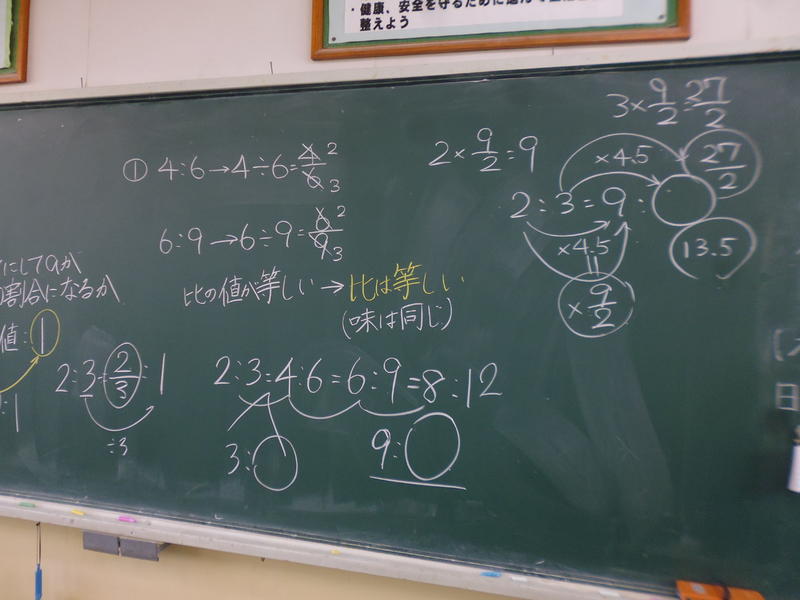 ・健康、安全を守るために
整えよう
① 4:6→4÷6=4/6 2 3
6:9→6÷9=6/9 2 3
比の値が等しい→比は等しい
(味は同じ)
にして9が
割合になるか
値:1
:1
2:3=2/3:1
÷3
2:3=4:6=6:9=8:12
3:○
9:○
2×9/2=9
3×9/2=27/2
×4.5
27/2
2:3=9:○
×4.5
13.5
×9/2
日